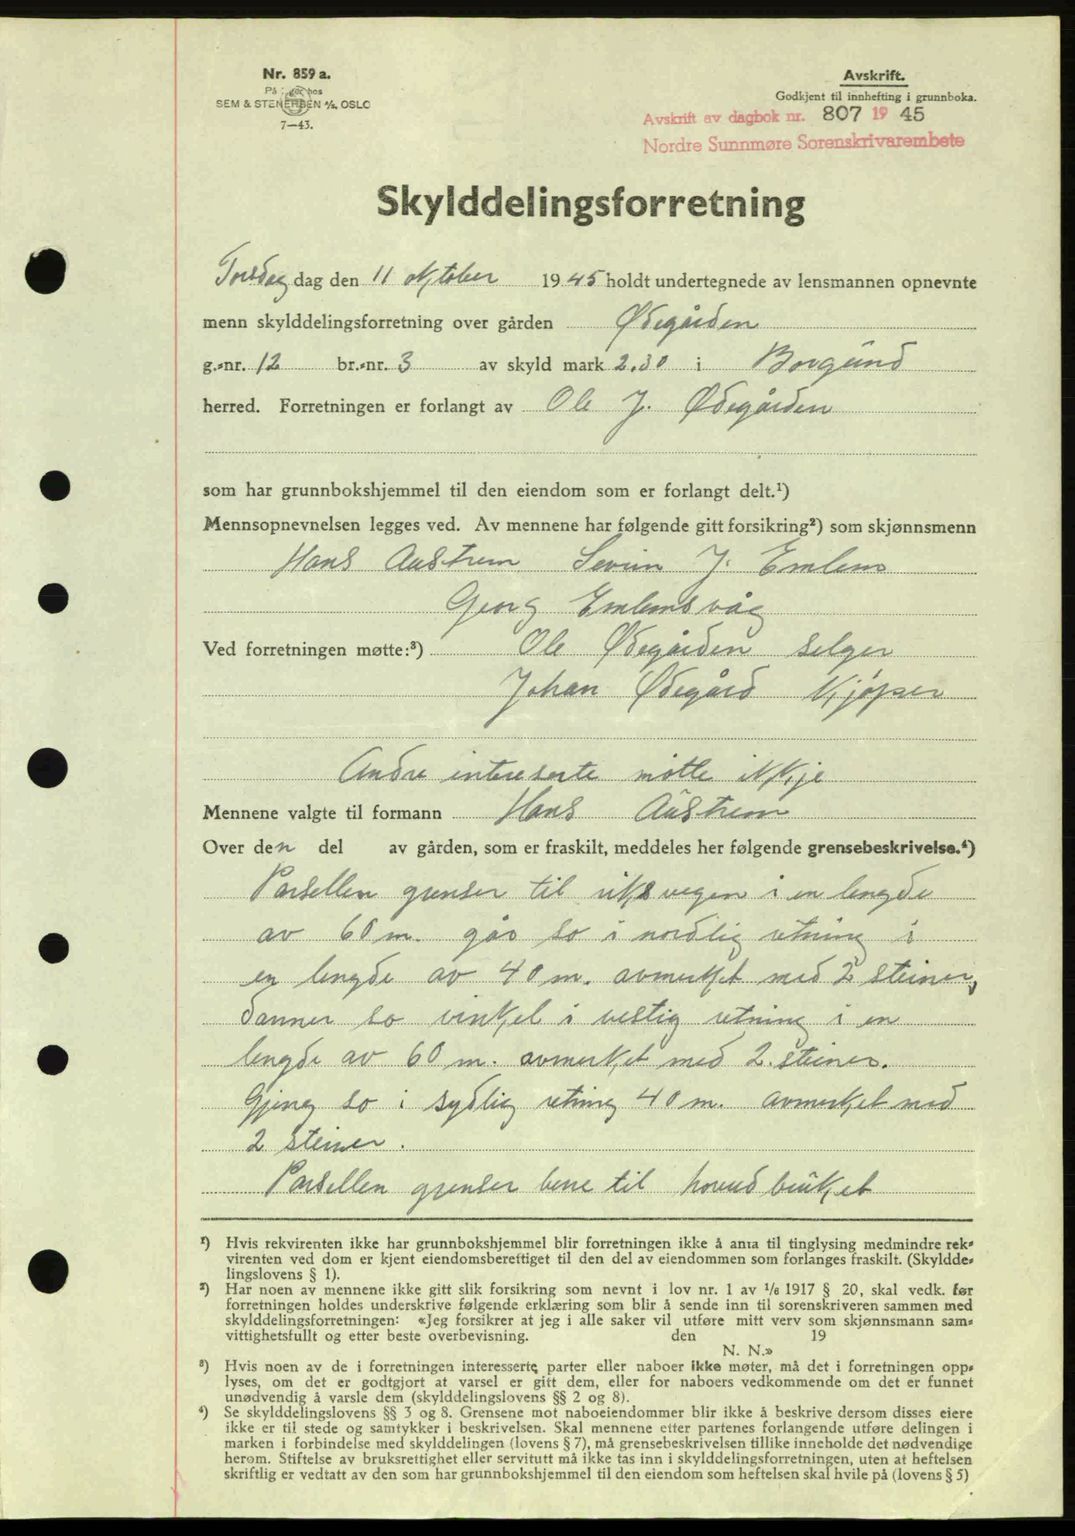 Nr. 859 a.
På lager hos
SEM & STENERSEN A/S, OSLO
7—43.
Avskrift.
Godkjent til innhefting i grunnboka.
Avskrift av dagbok nr. 807 19 45
Nordre Sunnmøre Sorenskrivarembete
Skylddelingsforretning
Torsdag dag den 11 oktober 1945 holdt undertegnede av lensmannen opnevnte
menn skylddelingsforretning over gården Ødegården
g.-nr. 12 br.-nr. 3 av skyld mark 2.30 i Borgund
herred. Forretningen er forlangt av Ole J. Ødegården
som har grunnbokshjemmel til den eiendom som er forlangt delt.¹)
Mennsopnevnelsen legges ved. Av mennene har følgende gitt forsikring²) som skjønnsmenn
Hans Austrem Severin J. Emlem
Georg Emlemsvåg
Ved forretningen møtte:³) Ole Ødegården selger
Johan Ødegård kjøper
Andre intereserte møtte ikkje
Mennene valgte til formann Hans Austrem
Over den del av gården, som er fraskilt, meddeles her følgende grensebeskrivelse.⁴)
Parsellen grenser til riksvegen i en lengde
av 60 m. går so i nordlig retning i
en lengde av 40 m. avmerket med 2 steiner,
danner so vinkel i vestig retning i en
lengde av 60 m. avmerket med 2. steiner.
Gjeng so i sydlig retning 40 m. avmerket med
2 steiner.
Parsellen grenser bene til hovudbruket
¹) Hvis rekvirenten ikke har grunnbokshjemmel blir forretningen ikke å anta til tinglysing medmindre rek-
virenten ved dom er kjent eiendomsberettiget til den del av eiendommen som forlanges fraskilt. (Skyldde-
lingslovens § 1).
²) Har noen av mennene ikke gitt slik forsikring som nevnt i lov nr. 1 av 1/6 1917 § 20, skal vedk. før
forretningen holdes underskrive følgende erklæring som blir å sende inn til sorenskriveren sammen med
skylddelingsforretningen: «Jeg forsikrer at jeg i alle saker vil utføre mitt verv som skjønnsmann sam-
vittighetsfullt og etter beste overbevisning. den 19
N. N.»
³) Hvis noen av de i forretningen interesserte parter eller naboer ikke møter, må det i forretningen opp-
lyses, om det er godtgjort at varsel er gitt dem, eller for naboers vedkommende om det er funnet
unødvendig å varsle dem (skylddelingslovens §§ 2 og 8).
⁴) Se skylddelingslovens §§ 3 og 8. Grensene mot naboeiendommer blir ikke å beskrive dersom disses eiere
ikke er til stede og samtykker i beskrivelsen. Skal mennene etter partenes forlangende utføre delingen i
marken i forbindelse med skylddelingen (lovens § 7), må grensebeskrivelsen tillike inneholde det nødvendige
herom. Stiftelse av bruksrettighet eller servitutt må ikke tas inn i skylddelingsforretningen, uten at heftelsen
skriftlig er vedtatt av den som har grunnbokshjemmel til den eiendom som heftelsen skal hvile på (lovens § 5)